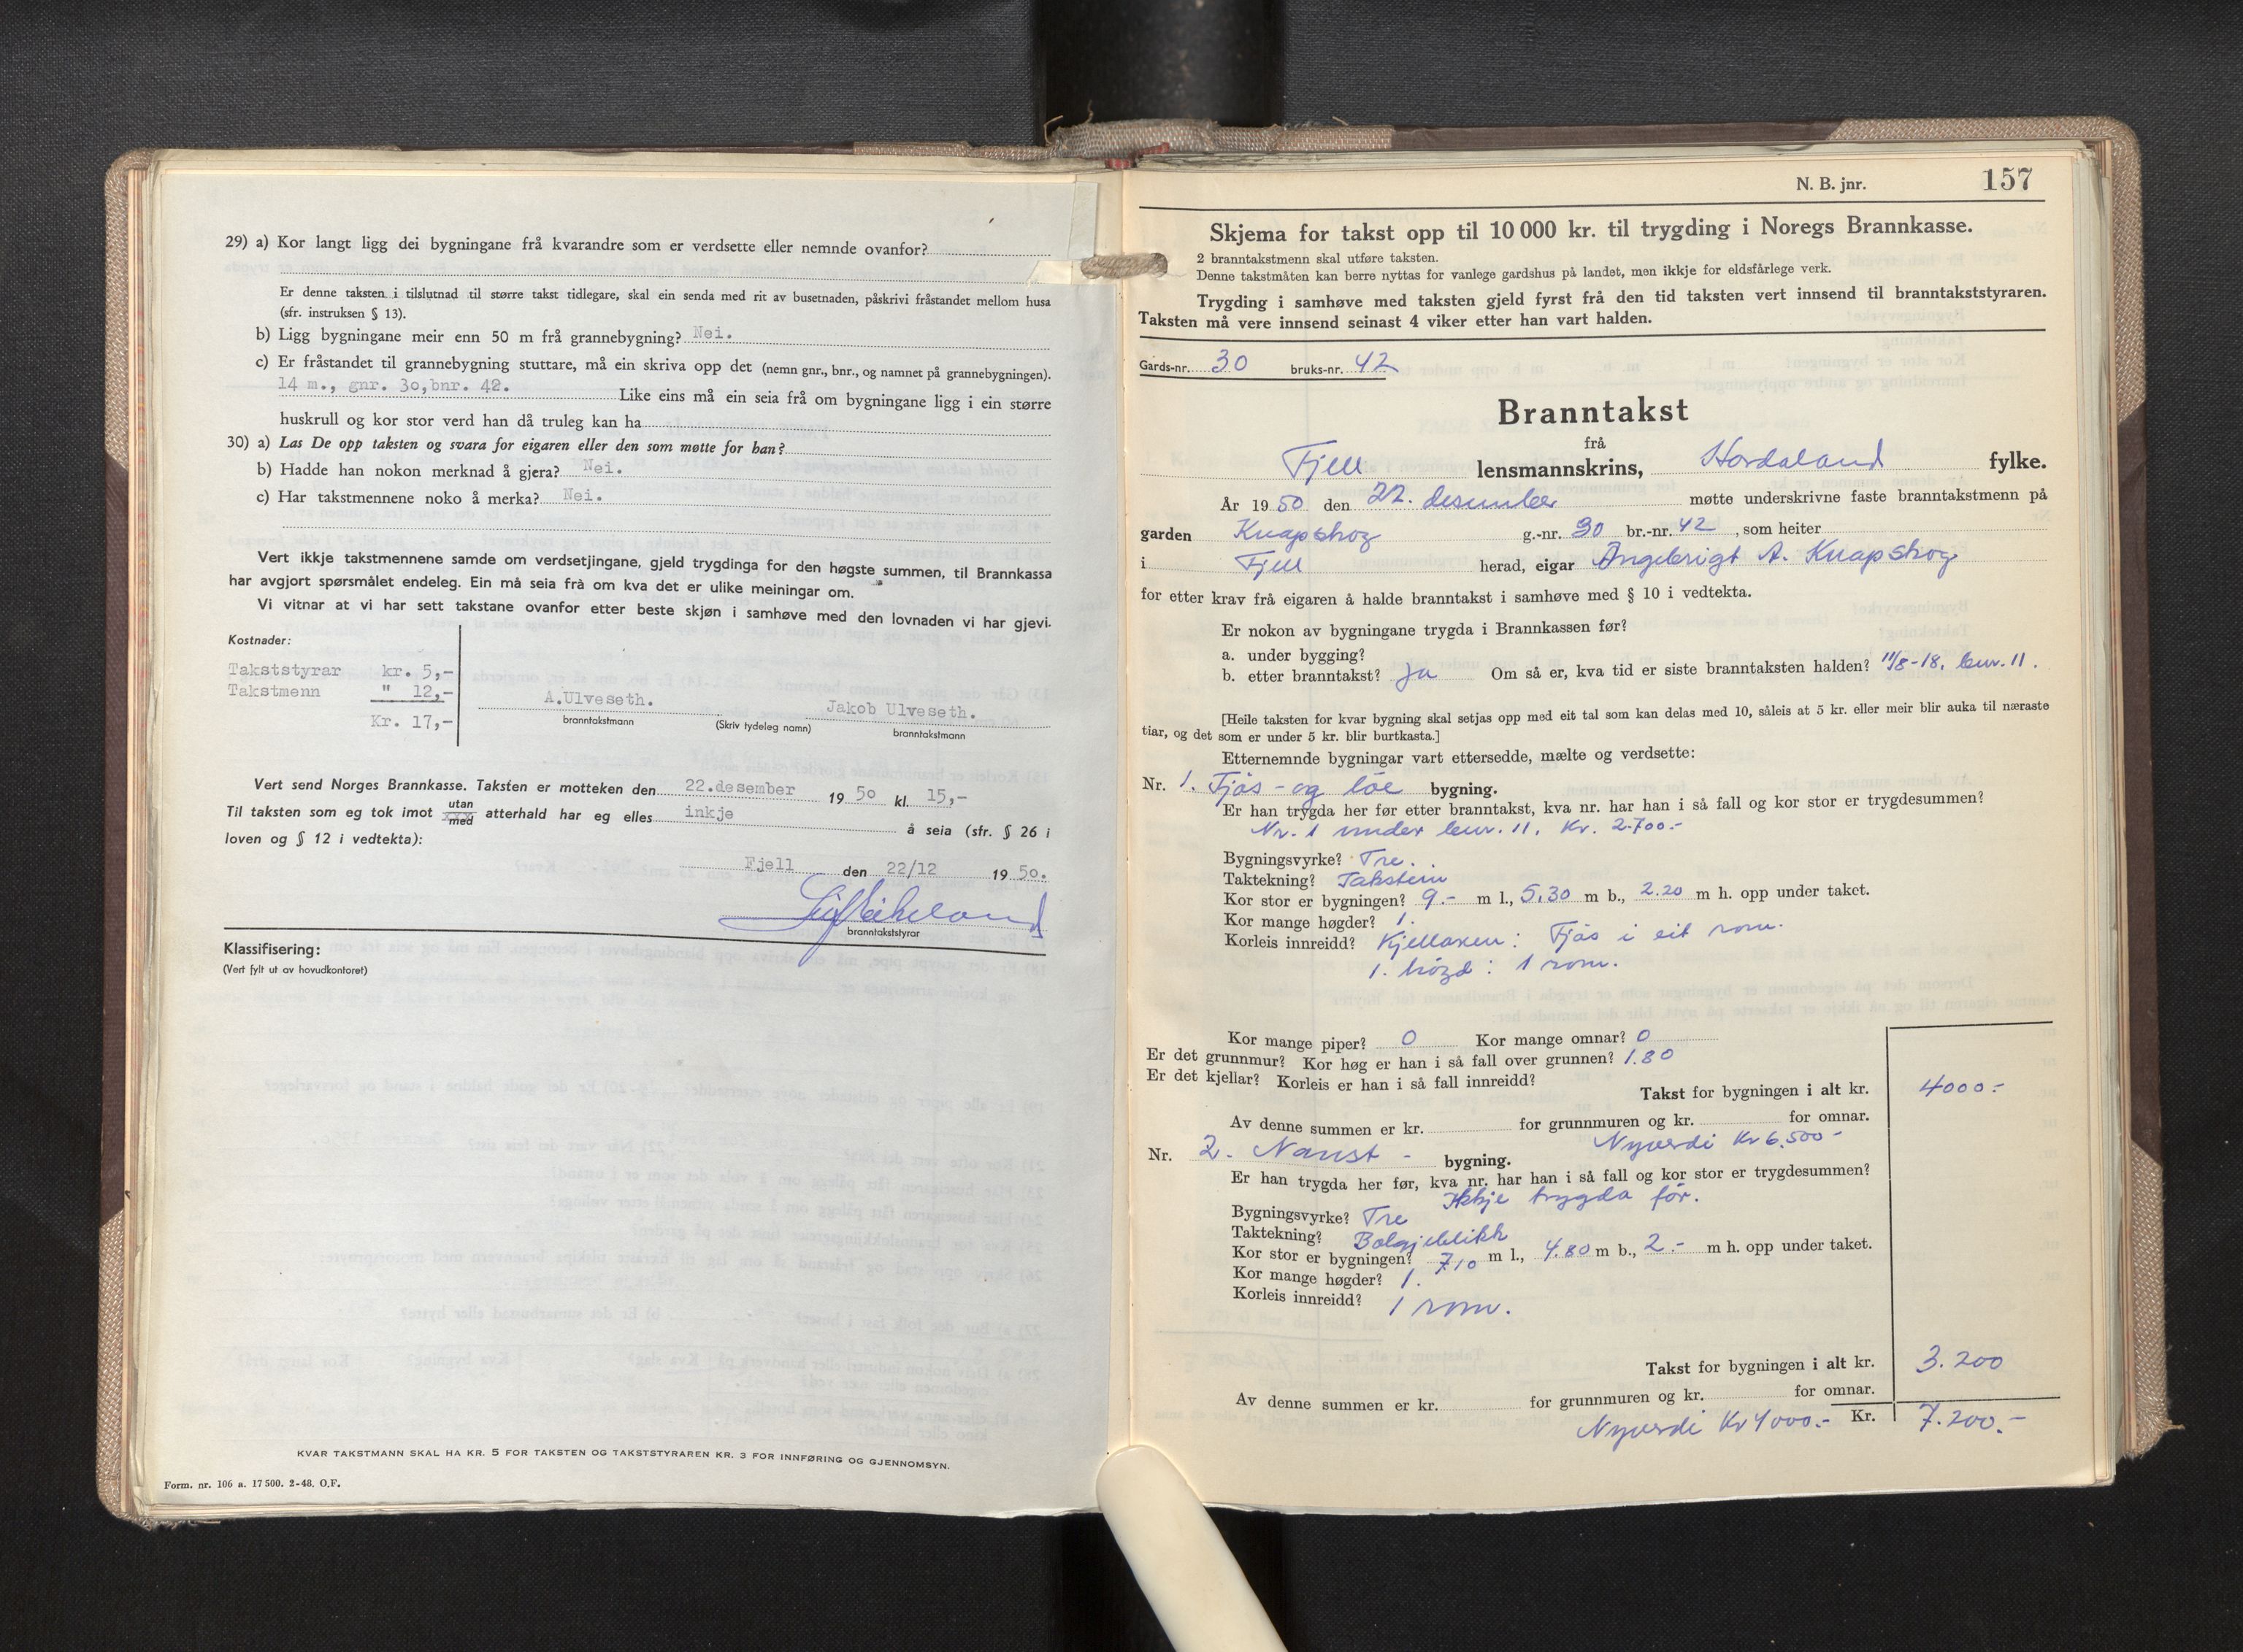 29) a) Kor langt ligg dei bygningane frå kvarandre som er verdsette eller nemnde ovanfor?
Er denne taksten i tilslutnad til større takst tidlegare, skal ein senda med rit av busetnaden, påskrivi fråstandet mellom husa
(sfr. instruksen § 13).
b) Ligg bygningane meir enn 50 m frå grannebygning? Nei.
c) Er fråstandet til grannebygning stuttare, må ein skriva opp det (nemn gnr., bnr., og namnet på grannebygningen).
14 m., gnr. 30,bnr. 42. Like eins må ein seia frå om bygningane ligg i ein større
huskrull og kor stor verd han då truleg kan ha
30) a) Las De opp taksten og svara for eigaren eller den som møtte for han?
b) Hadde han nokon merknad å gjera? Nei.
c) Har takstmennene noko å merka? Nei.
Vert ikkje takstmennene samde om verdsetjingane, gjeld trygdinga for den høgste summen, til Brannkassa
har avgjort spørsmålet endeleg. Ein må seia frå om kva det er ulike meiningar om.
Vi vitnar at vi har sett takstane ovanfor etter beste skjøn i samhøve med den lovnaden vi har gjevi.
Kostnader:
Takststyrar kr. 5,-
Takstmenn " 12,-
Kr. 17,-
A.Ulveseth. Jakob Ulveseth.
branntakstmann (Skriv tydeleg namn) branntakstmann
Vert send Norges Brannkasse. Taksten er motteken den 22.desember 1950 kl. 15,-
Til taksten som eg tok imot utan med atterhald har eg elles inkje å seia (sfr. § 26 i
loven og § 12 i vedtekta):
Fjell den 22/12 1950.
branntakststyrar
Klassifisering:
(Vert fylt ut av hovudkontoret)
KVAR TAKSTMANN SKAL HA KR. 5 FOR TAKSTEN OG TAKSTSTYRAREN KR. 3 FOR INNFØRING OG GJENNOMSYN.
Form. nr. 106 a. 17 500. 2-48. O.F.
N. B. jnr. 157
Skjema for takst opp til 10 000 kr. til trygding i Noregs Brannkasse.
2 branntakstmenn skal utføre taksten.
Denne takstmåten kan berre nyttas for vanlege gardshus på landet, men ikkje for eldsfårlege verk.
Trygding i samhøve med taksten gjeld fyrst frå den tid taksten vert innsend til branntakststyraren.
Taksten må vere innsend seinast 4 viker etter han vart halden.
Gards-nr. 30 bruks-nr. 42
Branntakst
frå
Fjell lensmannskrins, Hordaland fylke.
År 1950 den 22. desember møtte underskrivne faste branntakstmenn på
garden Knapskog g.-nr. 30 br.-nr. 42, som heiter
i Fjell herad, eigar Ingebrigt A. Knapskog
for etter krav frå eigaren å halde branntakst i samhøve med § 10 i vedtekta.
Er nokon av bygningane trygda i Brannkassen før?
a. under bygging?
b. etter branntakst? Ja Om så er, kva tid er siste branntaksten halden? 11/8-18. lnr. 11.
[Heile taksten for kvar bygning skal setjas opp med eit tal som kan delas med 10, såleis at 5 kr. eller meir blir auka til næraste
tiar, og det som er under 5 kr. blir burtkasta.]
Etternemnde bygningar vart ettersedde, mælte og verdsette:
Nr. 1. Fjøs - og løe bygning.
Er han trygda her før etter branntakst, kva nr. har han i så fall og kor stor er trygdesummen?
Nr. 1 under lnr. 11. Kr. 2.700.-
Bygningsvyrke? Tre.
Taktekning? Takstein
Kor stor er bygningen? 9.- m l., 5,30 m b., 2.20 m h. opp under taket.
Kor mange høgder? 1.
Korleis innreidd? Kjellaren: Fjøs i eit rom.
1. høgd: 1 rom.
Kor mange piper? 0 Kor mange omnar? 0
Er det grunnmur? Kor høg er han i så fall over grunnen? 1.80
Er det kjellar? Korleis er han i så fall innreidd?
Takst for bygningen i alt kr. 4000.-
Av denne summen er kr. for grunnmuren og kr. for omnar.
Nyverdi Kr 6.500-
Nr. 2. Naust - bygning.
Er han trygda her før, kva nr. har han i så fall og kor stor er trygdesummen?
Ikkje trygda før.
Bygningsvyrke? Tre
Taktekning? Bølgjeblikk
Kor stor er bygningen? 7.10 m l., 4.80 m b., 2.- m h. opp under taket.
Kor mange høgder? 1.
Korleis innreidd? 1 rom.
Takst for bygningen i alt kr. 3.200
Av denne summen er kr. for grunnmuren og kr. for omnar.
Nyverdi Kr 4000.- Kr. 7.200.-